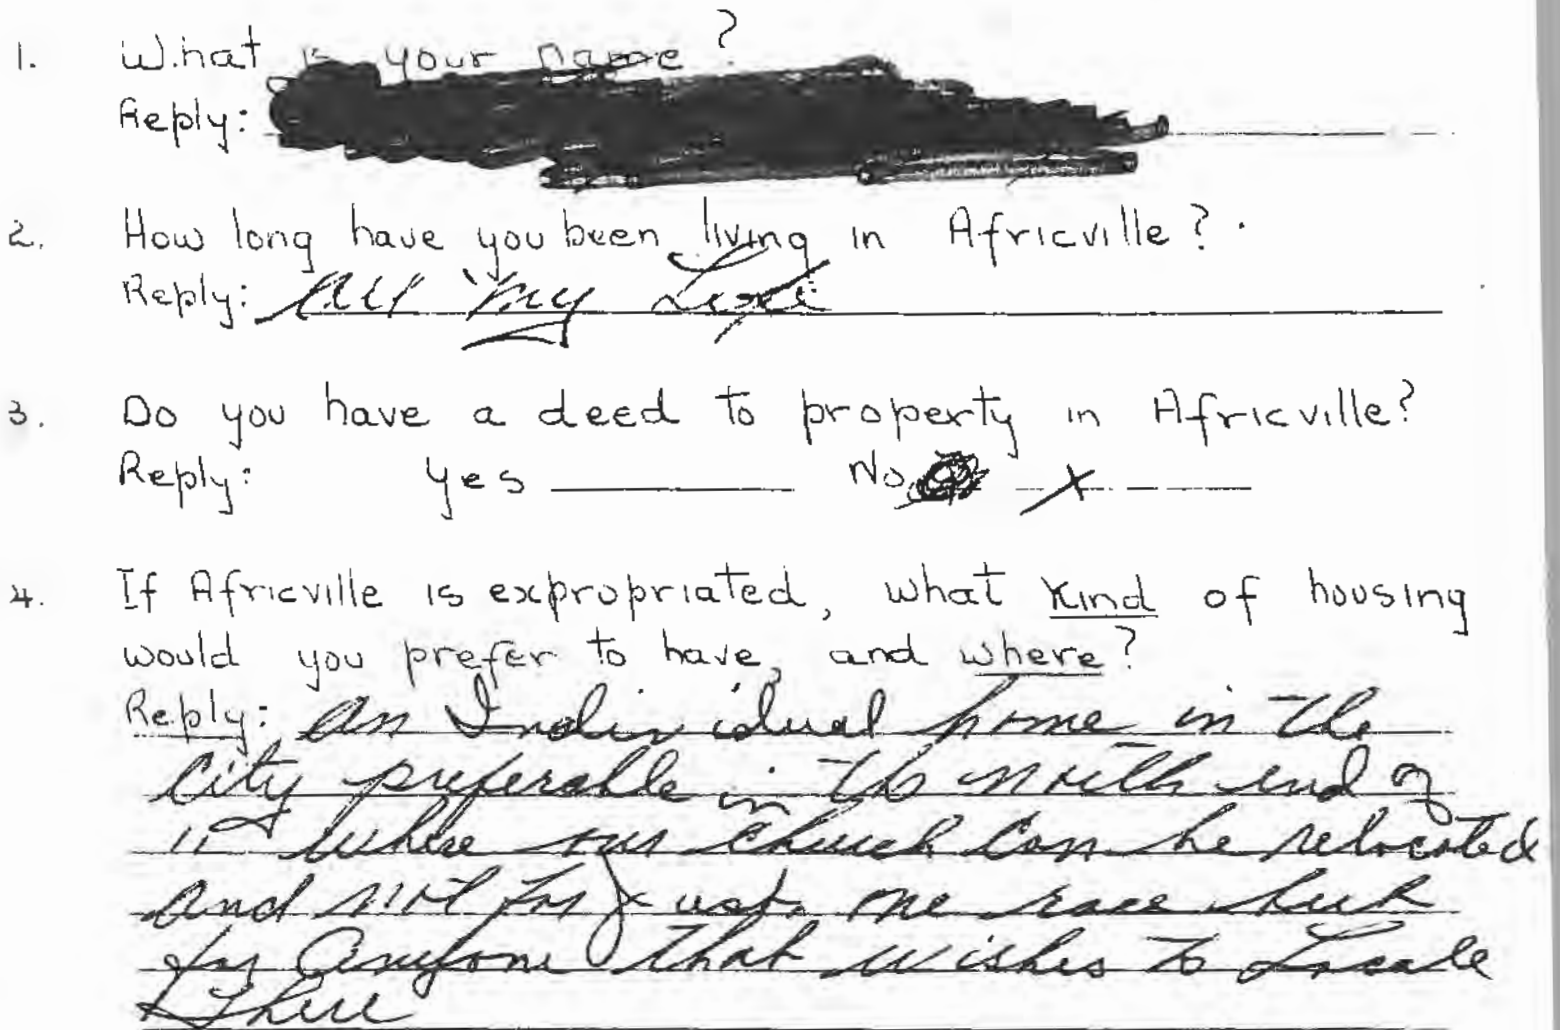 1. What is your name?
Reply:
2. How long have you been living in Africville?
Reply: All my Life
3. Do you have a deed to property in Africville?
Reply: Yes No X
4. If Africville is expropriated, what kind of housing
would you prefer to have, and where?
Reply: An Individual home in the
City preferable in the north end of
it where our church can be relocated
and not for just one race but
for Anyone that wishes to Locate
There